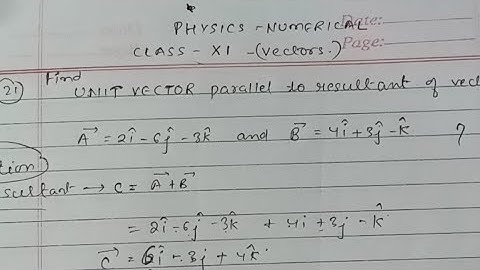 PHYSICS - NUMERICAL
Date:
CLASS - XI - (vectors.)
Page:
21) Find
UNIT VECTOR parallel to resultant of vec
A⃗ = 2î - 6ĵ - 3k̂ and B⃗ = 4î + 3ĵ - k̂ ?
tion
sultant → C = A⃗ + B⃗
= 2î - 6ĵ - 3k̂ + 4i + 3j - k̂
C⃗ = 6î - 3j + 4k̂